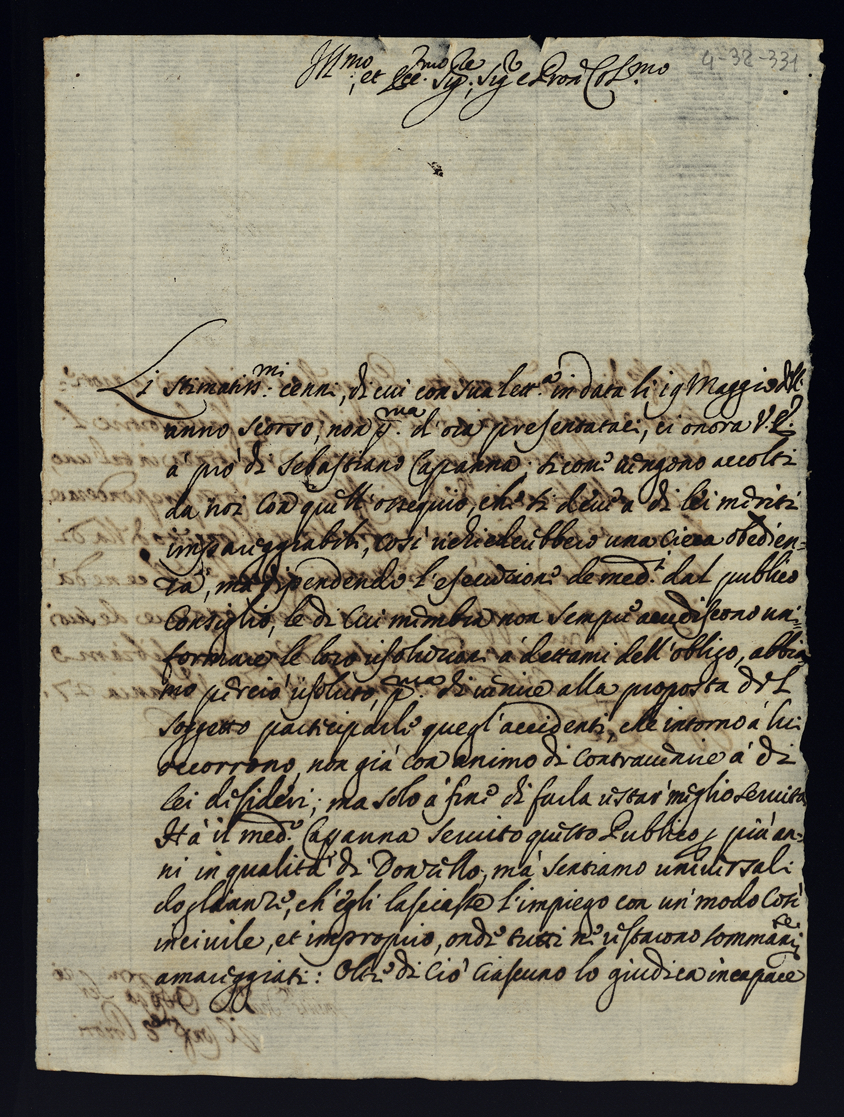 4-32-331
Ill.mo, et Ecc.mo Sig.re, Sig.r e Pron Col.mo
Li stimatiss.mi cenni, di cui con sua lett.a in data li 19 Maggio dell'
anno scorso, non p.ma d'ora presentataci, ci onora V.E.
à prò di Sebastiano Capanna, sicome vengono accolti
da noi con quell'ossequio, che si deve a di lei meriti
impareggiabili, così richiederebbero una cieca obedien=
za, mà dipendendo l'esecuzione de med.i dal publico
Consiglio, le di cui membra non sempre aderiscono uni=
formare le loro risoluzioni à dettami dell'obligo, abbia
mo perciò risoluto, p.ma di venire alla proposta del
soggetto participarle quegl'accidenti, che intorno à lui
occorrono, non già con animo di contravenire à di
lei desideri; ma solo à fine di farla restar meglio servita
Hà il med.o Capanna servito questo Publico p più an=
ni in qualità di Donzello, mà sentiamo universali
doglianze, ch'egli lasciasse l'impiego con un modo così
incivile, et improprio, onde tutti ne restarono sommam.te
amareggiati: Oltre di ciò ciascuno lo giudica incapace